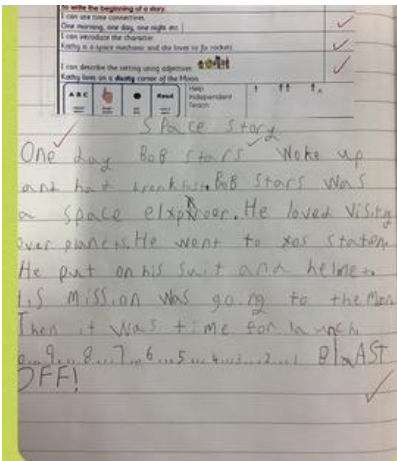 to write the beginning of a story.
I can use time connectives.
One morning, one day, one night etc.
I can introduce the character.
Kathy is a space mechanic and she loves to fix rockets.
I can describe the setting using adjectives.
Kathy lives on a dusty corner of the Moon.
A B C Read Help
Independent
Teach
Space story
One day BoB stars Woke up
and had breakfast. BoB Stars was
a space elxpreer. He loved visitg
over planets. He went to xos station.
He put on his suit and helmet
his mission was going to the Moon
Then it was time for launch
9...8...7...6...5...4...3...2...1 BlaAST
OFF!